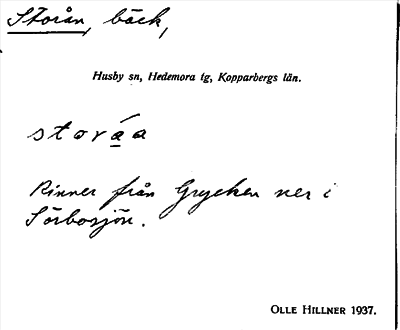 Storån, bäck,
Husby sn, Hedemora tg, Kopparbergs län.
storá̱a
Rinner från Grycken ner i
Sörbosjön.
OLLE HILLNER 1937.